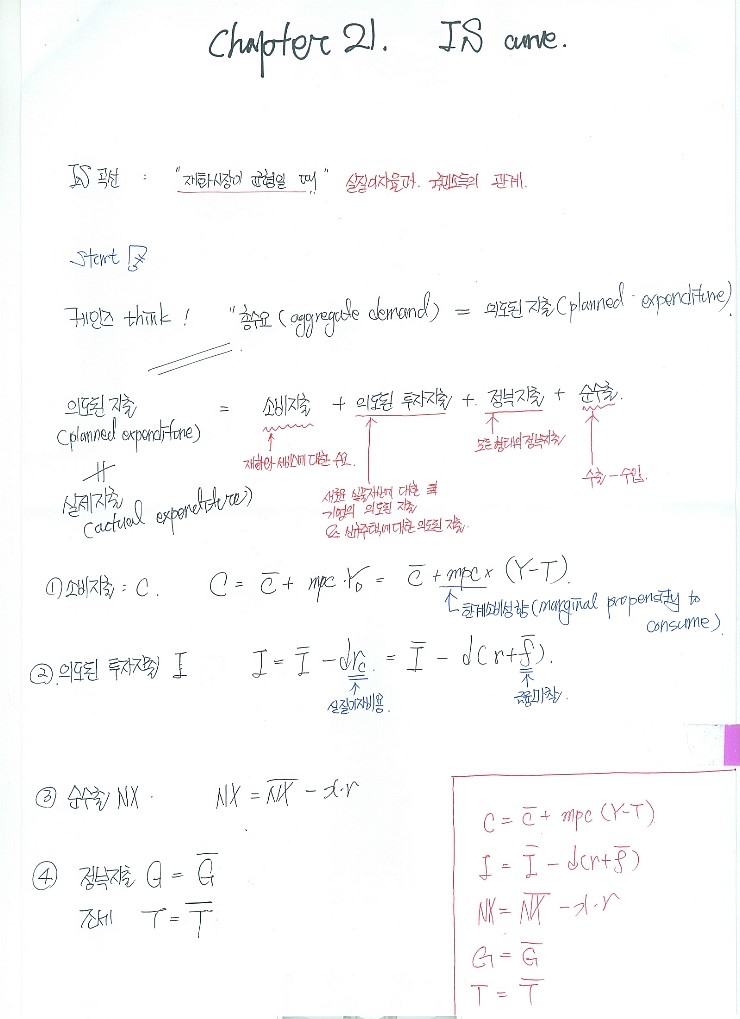 Chapter 21. IS curve.
IS 곡선 : "재화시장이 균형일 때" 실질이자율과 국민소득의 관계.
Start
케인즈 think! "총수요 (aggregate demand) = 의도된 지출 (planned expenditure)
의도된 지출 = 소비지출 + 의도된 투자지출 + 정부지출 + 순수출.
(planned expenditure)
재화와 서비스에 대한 수요.
모든 형태의 정부지출
수출-수입
실제지출
(actual expenditure)
새로운 실물자산에 대한
기업의 의도된 지출
신규주택에 대한 의도된 지출.
① 소비지출 : C. C = C̅ + mpc·Y_D = C̅ + mpc × (Y-T).
한계소비성향 (marginal propensity to
consume)
② 의도된 투자지출 I I = I̅ - dr_c = I̅ - d(r+f̅).
실질이자비용
금융마찰.
③ 순수출 NX. NX = N̅X̅ - x·r
④ 정부지출 G = G̅
조세 T = T̅
C = C̅ + mpc (Y-T)
I = I̅ - d(r+f̅)
NX = N̅X̅ - x·r
G = G̅
T = T̅